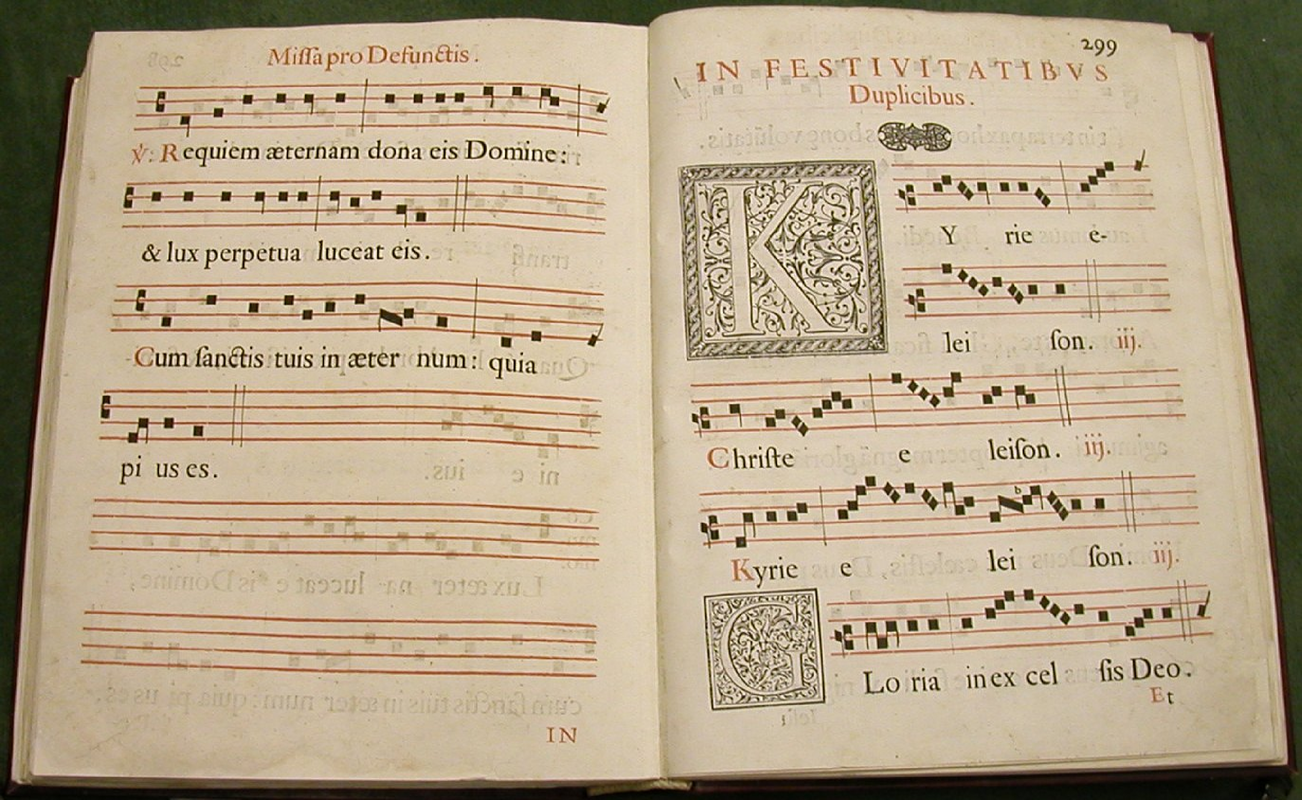 Miſſa pro Defunctis.
℣: Requiem æternam dona eis Domine:
& lux perpetua luceat eis.
Cum ſanctis tuis in æter num: quia
pi us es.
IN
299
IN FESTIVITATIBVS
Duplicibus.
KY rie e-
lei ſon. iij.
Chriſte e leiſon. iij.
Kyrie e lei ſon. iij.
GLo ria in ex cel ſis Deo.
Et